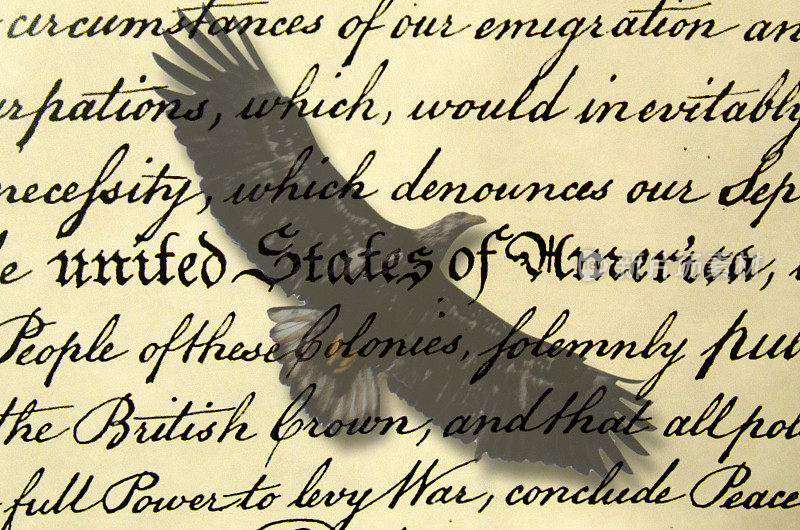 circumstances of our emigration an
urpations, which, would inevitably
necessity, which denounces our Sep
e united States of America,
People of these Colonies, solemnly pu
the British Crown, and that all pol
full Power to levy War, conclude Peace